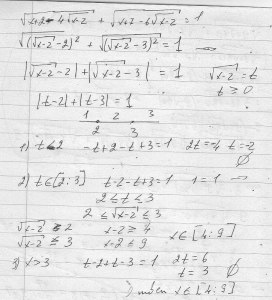 √x+2-4√x-2 + √x+7-6√x-2 = 1
√(√x-2 -2)² + √(√x-2 -3)² = 1
|√x-2 -2| + |√x-2 -3| = 1 √x-2 = t
t ≥ 0
|t-2|+|t-3| = 1
1 2 3
2 3
1) t<2 -t+2-t+3=1 2t=-4 t=-2
∅
2) t∈[2;3) t-2-t+3=1 1=1
2 ≤ t ≤ 3
2 ≤ √x-2 ≤ 3
√x-2 ≥ 2 x-2 ≥ 4 x∈[4;9]
√x-2 ≤ 3 x-2 ≤ 9
3) x>3 t-2+t-3=1 2t=6
t=3 ∅
x∈[4;9]